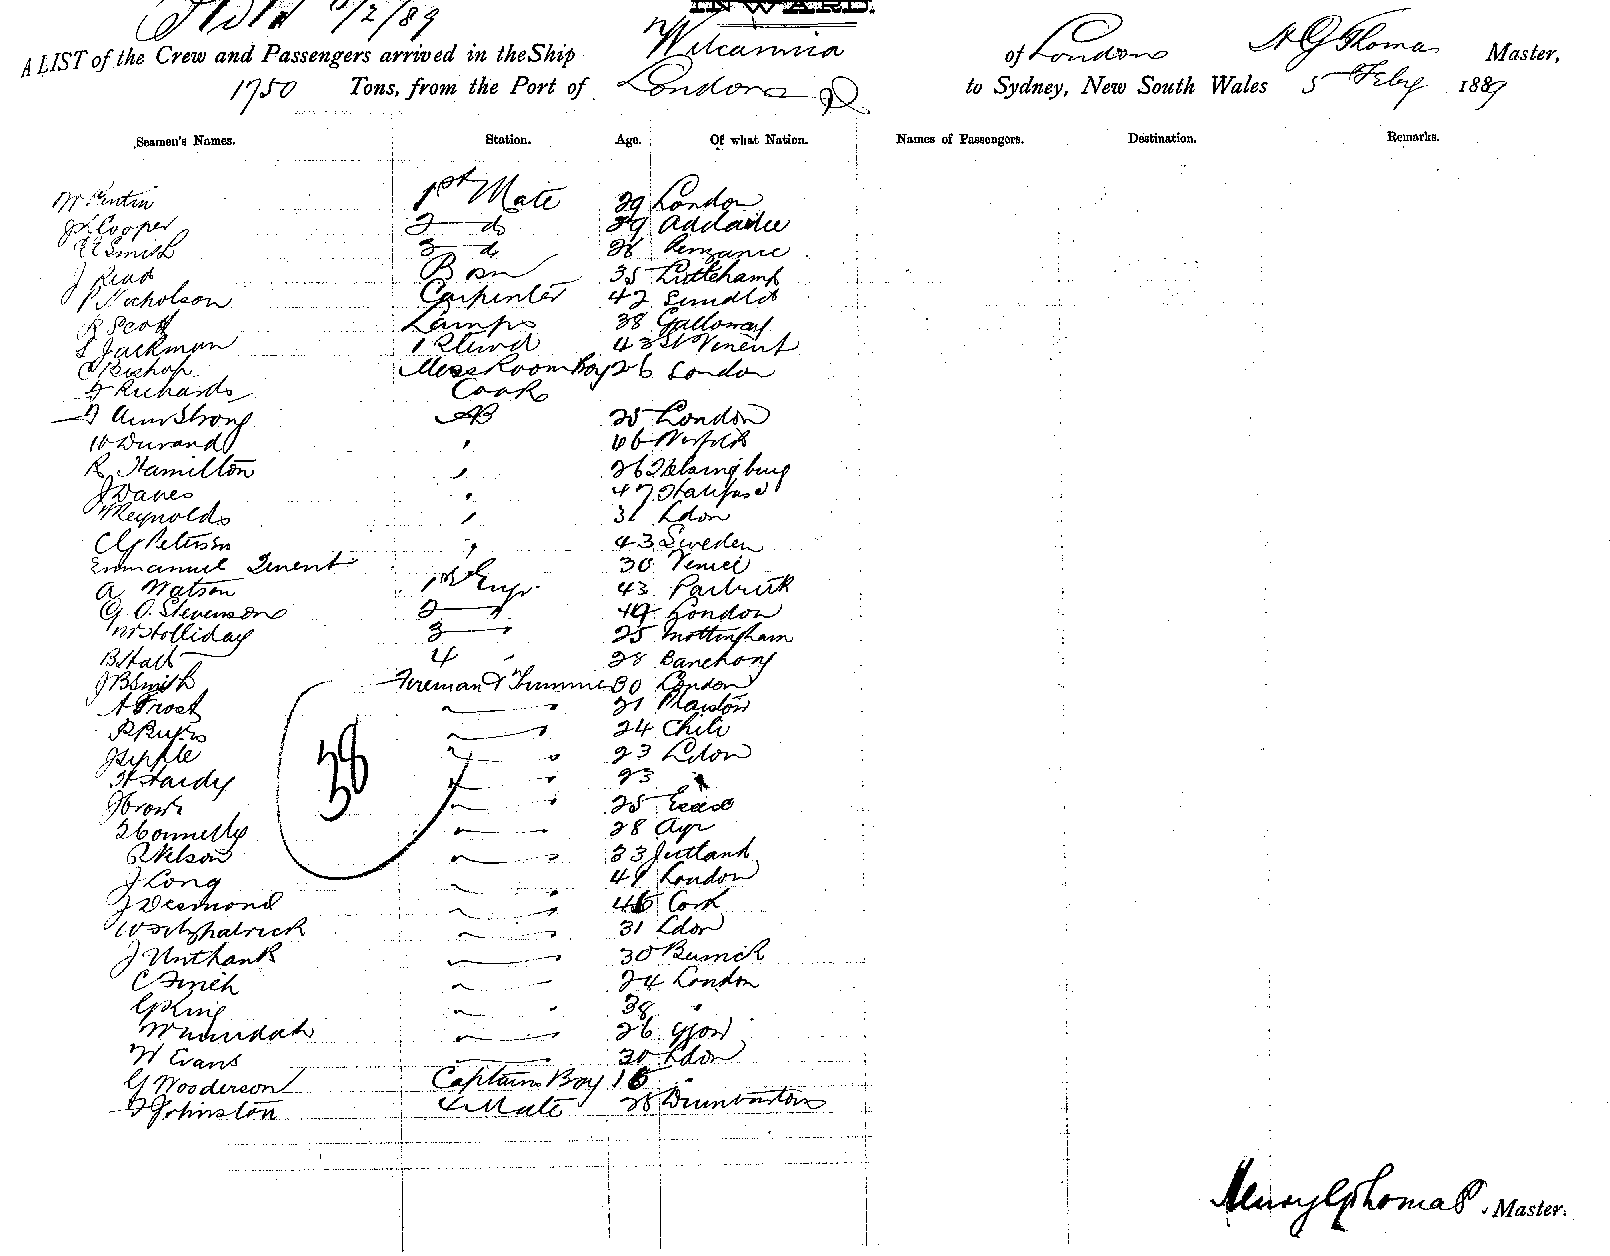 5/2/89
INWARD.
A LIST of the Crew and Passengers arrived in the Ship Wilcannia of London H G Thomas Master,
1750 Tons, from the Port of London to Sydney, New South Wales 5 Feby 1889
Seamen's Names. Station. Age. Of what Nation. Names of Passengers. Destination. Remarks.
1st Mate 29 London
Cooper 2 do 29 Addaidie
Smith 3 d 26 Penzance
J Read Bosn 35 Littlehamp
P Nicholson Carpenter 42
R Scott Lamps 38 Galloway
S Jackman 1 Stewd 43 St Vincent
C Bishop Mess Room Boy 26 London
Richards Cook
Armstrong AB 25 London
W Durand " Norfolk
R Hamilton " 26 Helsingburg
J Daves " 47 Halifase
Reynolds " 31 Ldon
C G Peterson " 43 Sweden
Emmanuel 30 Venice
A Watson 1st Engr 43
G. O. Stevenson 2 " 49 London
W Holliday 3 " 25 Nottingham
B Hall 4 " 28
J B Smith Fireman & Trimmer 30 London
A Frost 21 Plaistow
24 Chili
J 23 Ldon
H Hardy 23 "
J 25 Essex
Connelly 28 Ayr
P Nelson 33 Jutland
J Long 49 London
J Desmond 46 Cork
W Fitzphatrick 31 Ldon
J Unthank 30 Berwick
C Finch 24 London
G King 38 "
26 Gow
W Evans 30 Ldon
G Wooderson Captains Boy 16 "
Johnston 4 Mate 28 Dumbarton
38
Henry G Thomas. Master.